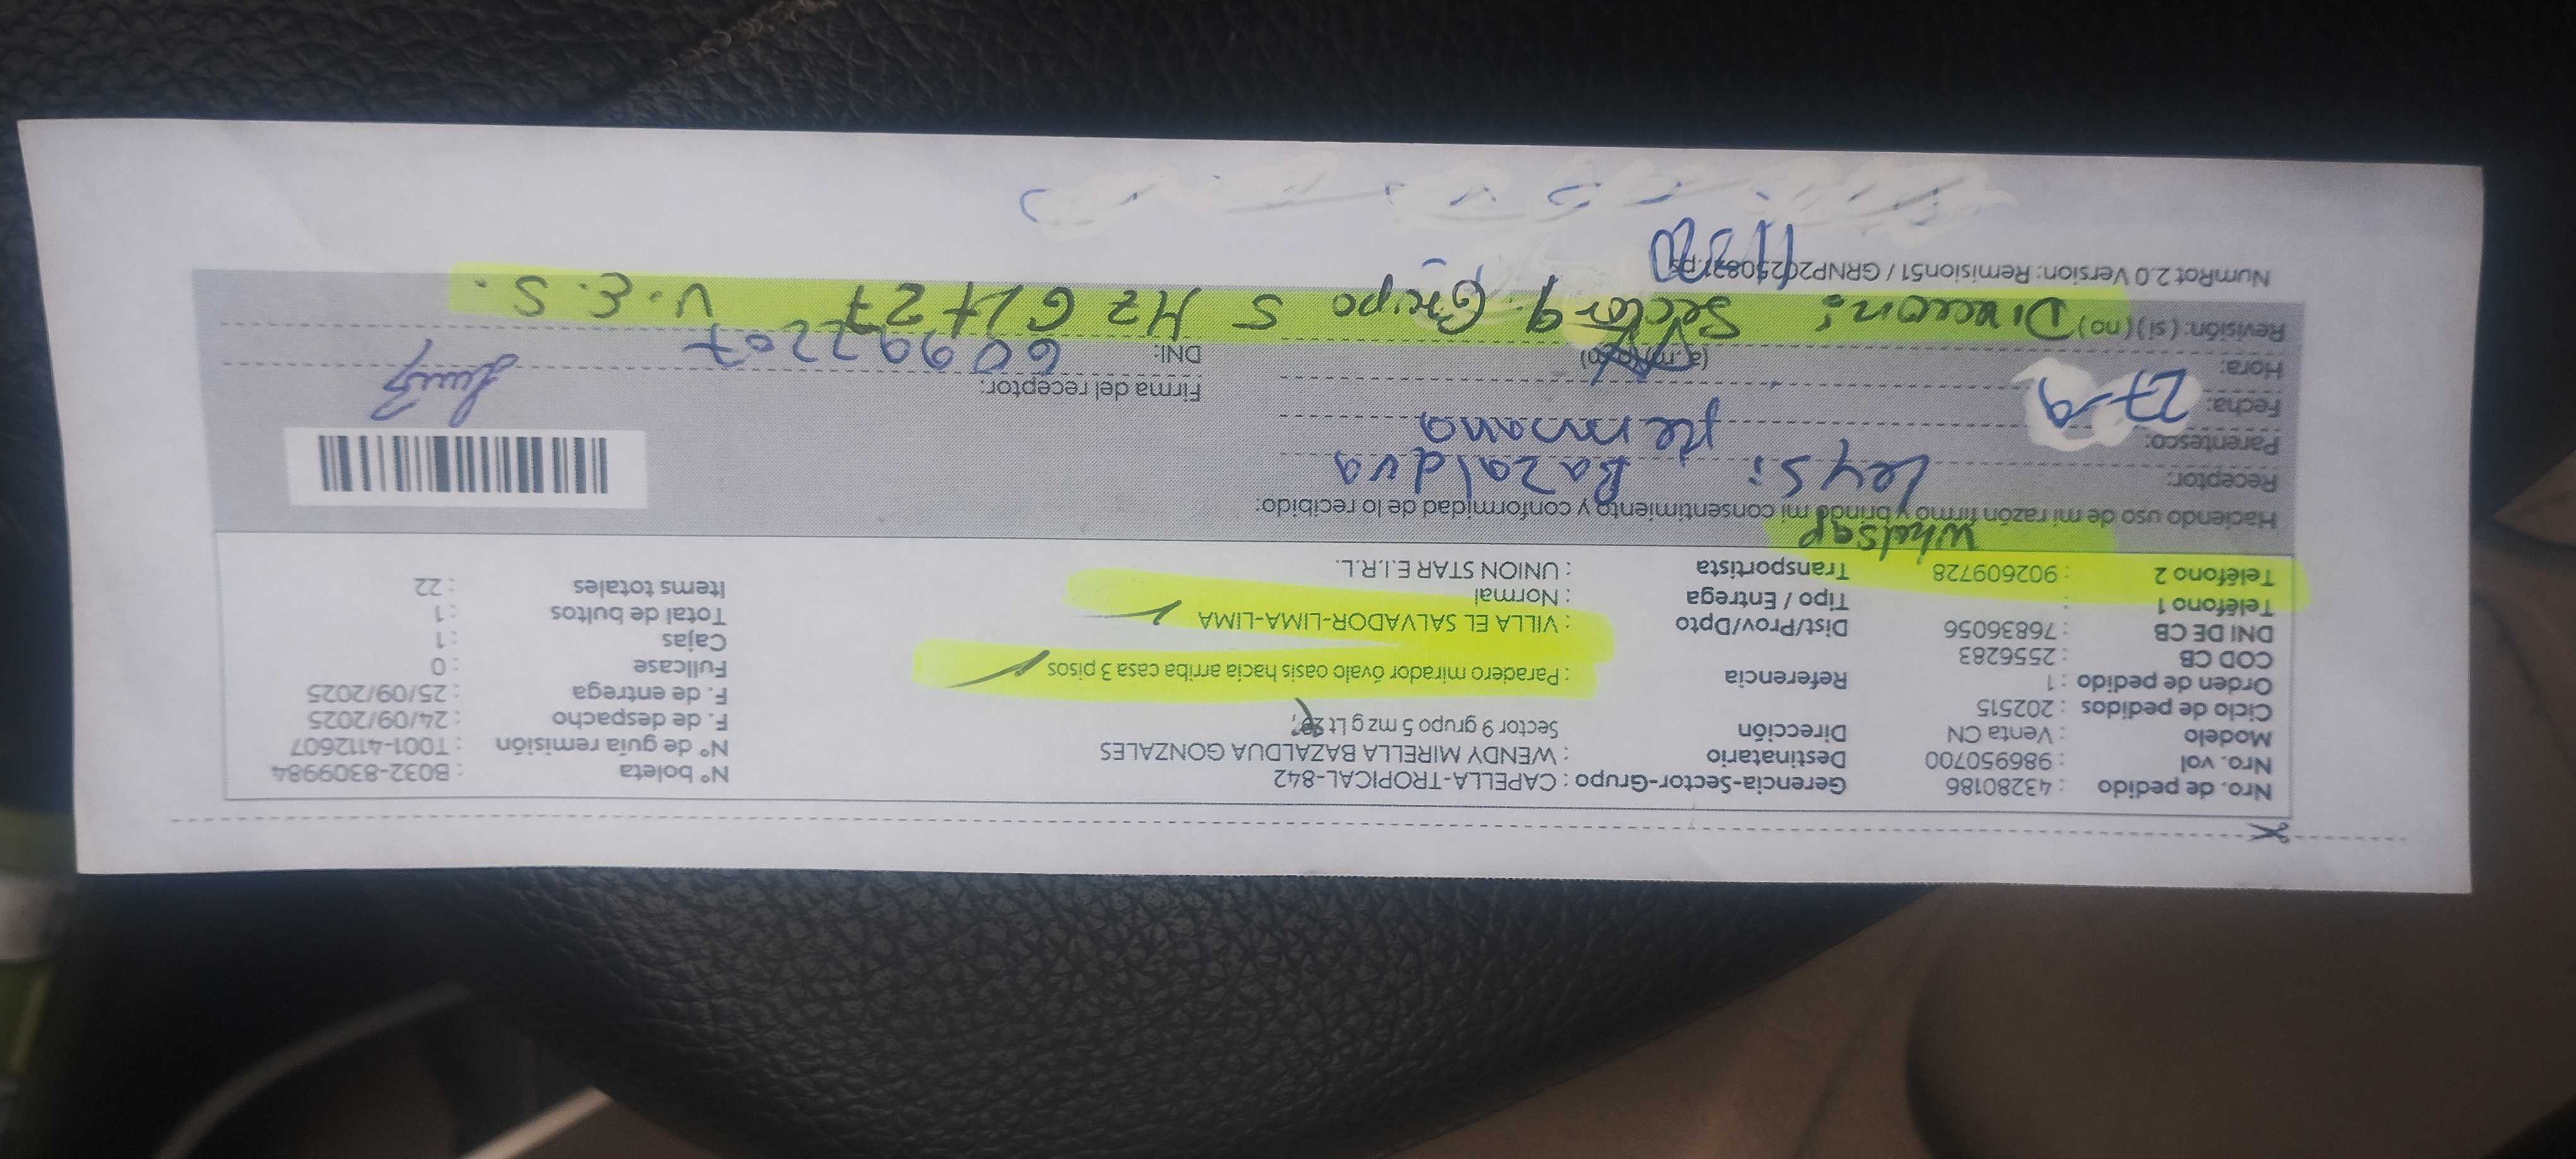 Nro. de pedido : 43280186 Gerencia-Sector-Grupo : CAPELLA-TROPICAL-842 N° boleta : B032-8309984
Nro. vol : 986950700 Destinatario : WENDY MIRELLA BAZALDUA GONZALES N° de guía remisión : T001-4112607
Modelo : Venta CN Dirección Sector 9 grupo 5 mz g Lt F. de despacho : 24/09/2025
Ciclo de pedidos : 202515 F. de entrega : 25/09/2025
Orden de pedido : 1 Referencia : Paradero mirador óvalo oasis hacia arriba casa 3 pisos Fullcase : 0
COD CB : 2556283 Cajas : 1
DNI DE CB : 76836056 Dist/Prov/Dpto : VILLA EL SALVADOR-LIMA-LIMA Total de bultos : 1
Teléfono 1 : Tipo / Entrega : Normal Items totales : 22
Teléfono 2 : 902609728 Transportista : UNION STAR E.I.R.L.
Whatsap
Haciendo uso de mi razón firmo y brindo mi consentimiento y conformidad de lo recibido:
Receptor: Leysi Bazaldua
Parentesco: hermana
Fecha: 27-9 Firma del receptor:
Hora: (a. m) (p. m) DNI: 60992207
Revisión: (si) (no) Dirección: Sector 9 Grupo 5 Mz G Lt 27 V.E.S.
NumRot 2.0 Version: Remision51 / GRNP20250821.ps